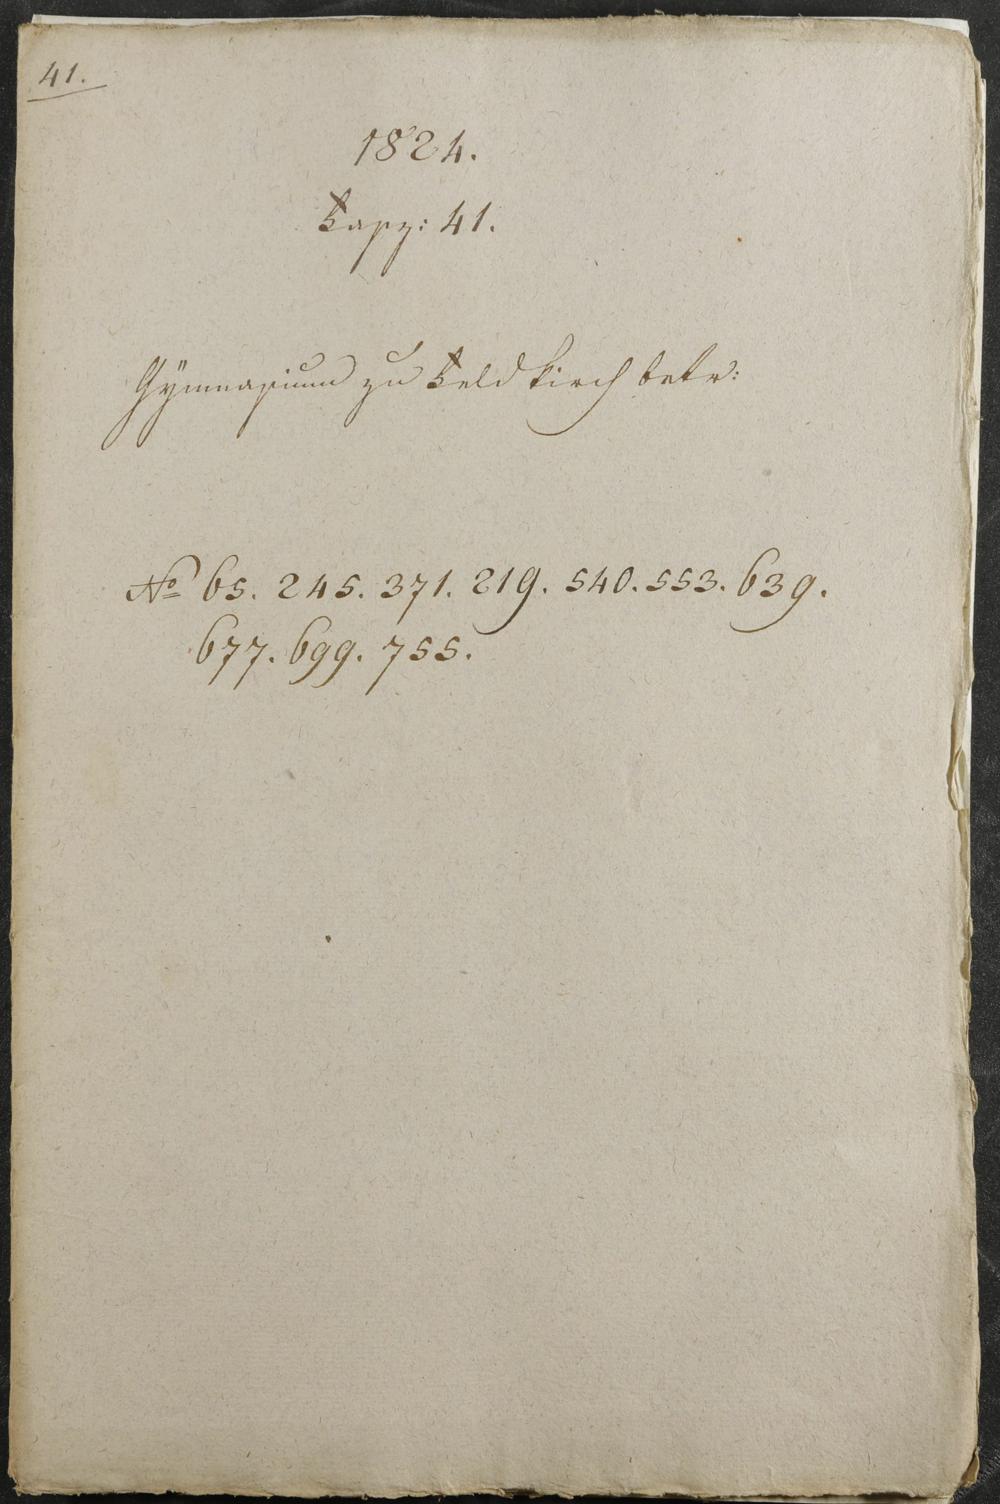 41.
1824.
Fasz: 41.
Gÿmnasium zu Feldkirch betr:
No 65. 245. 371. 219. 540. 553. 639.
677. 699. 755.